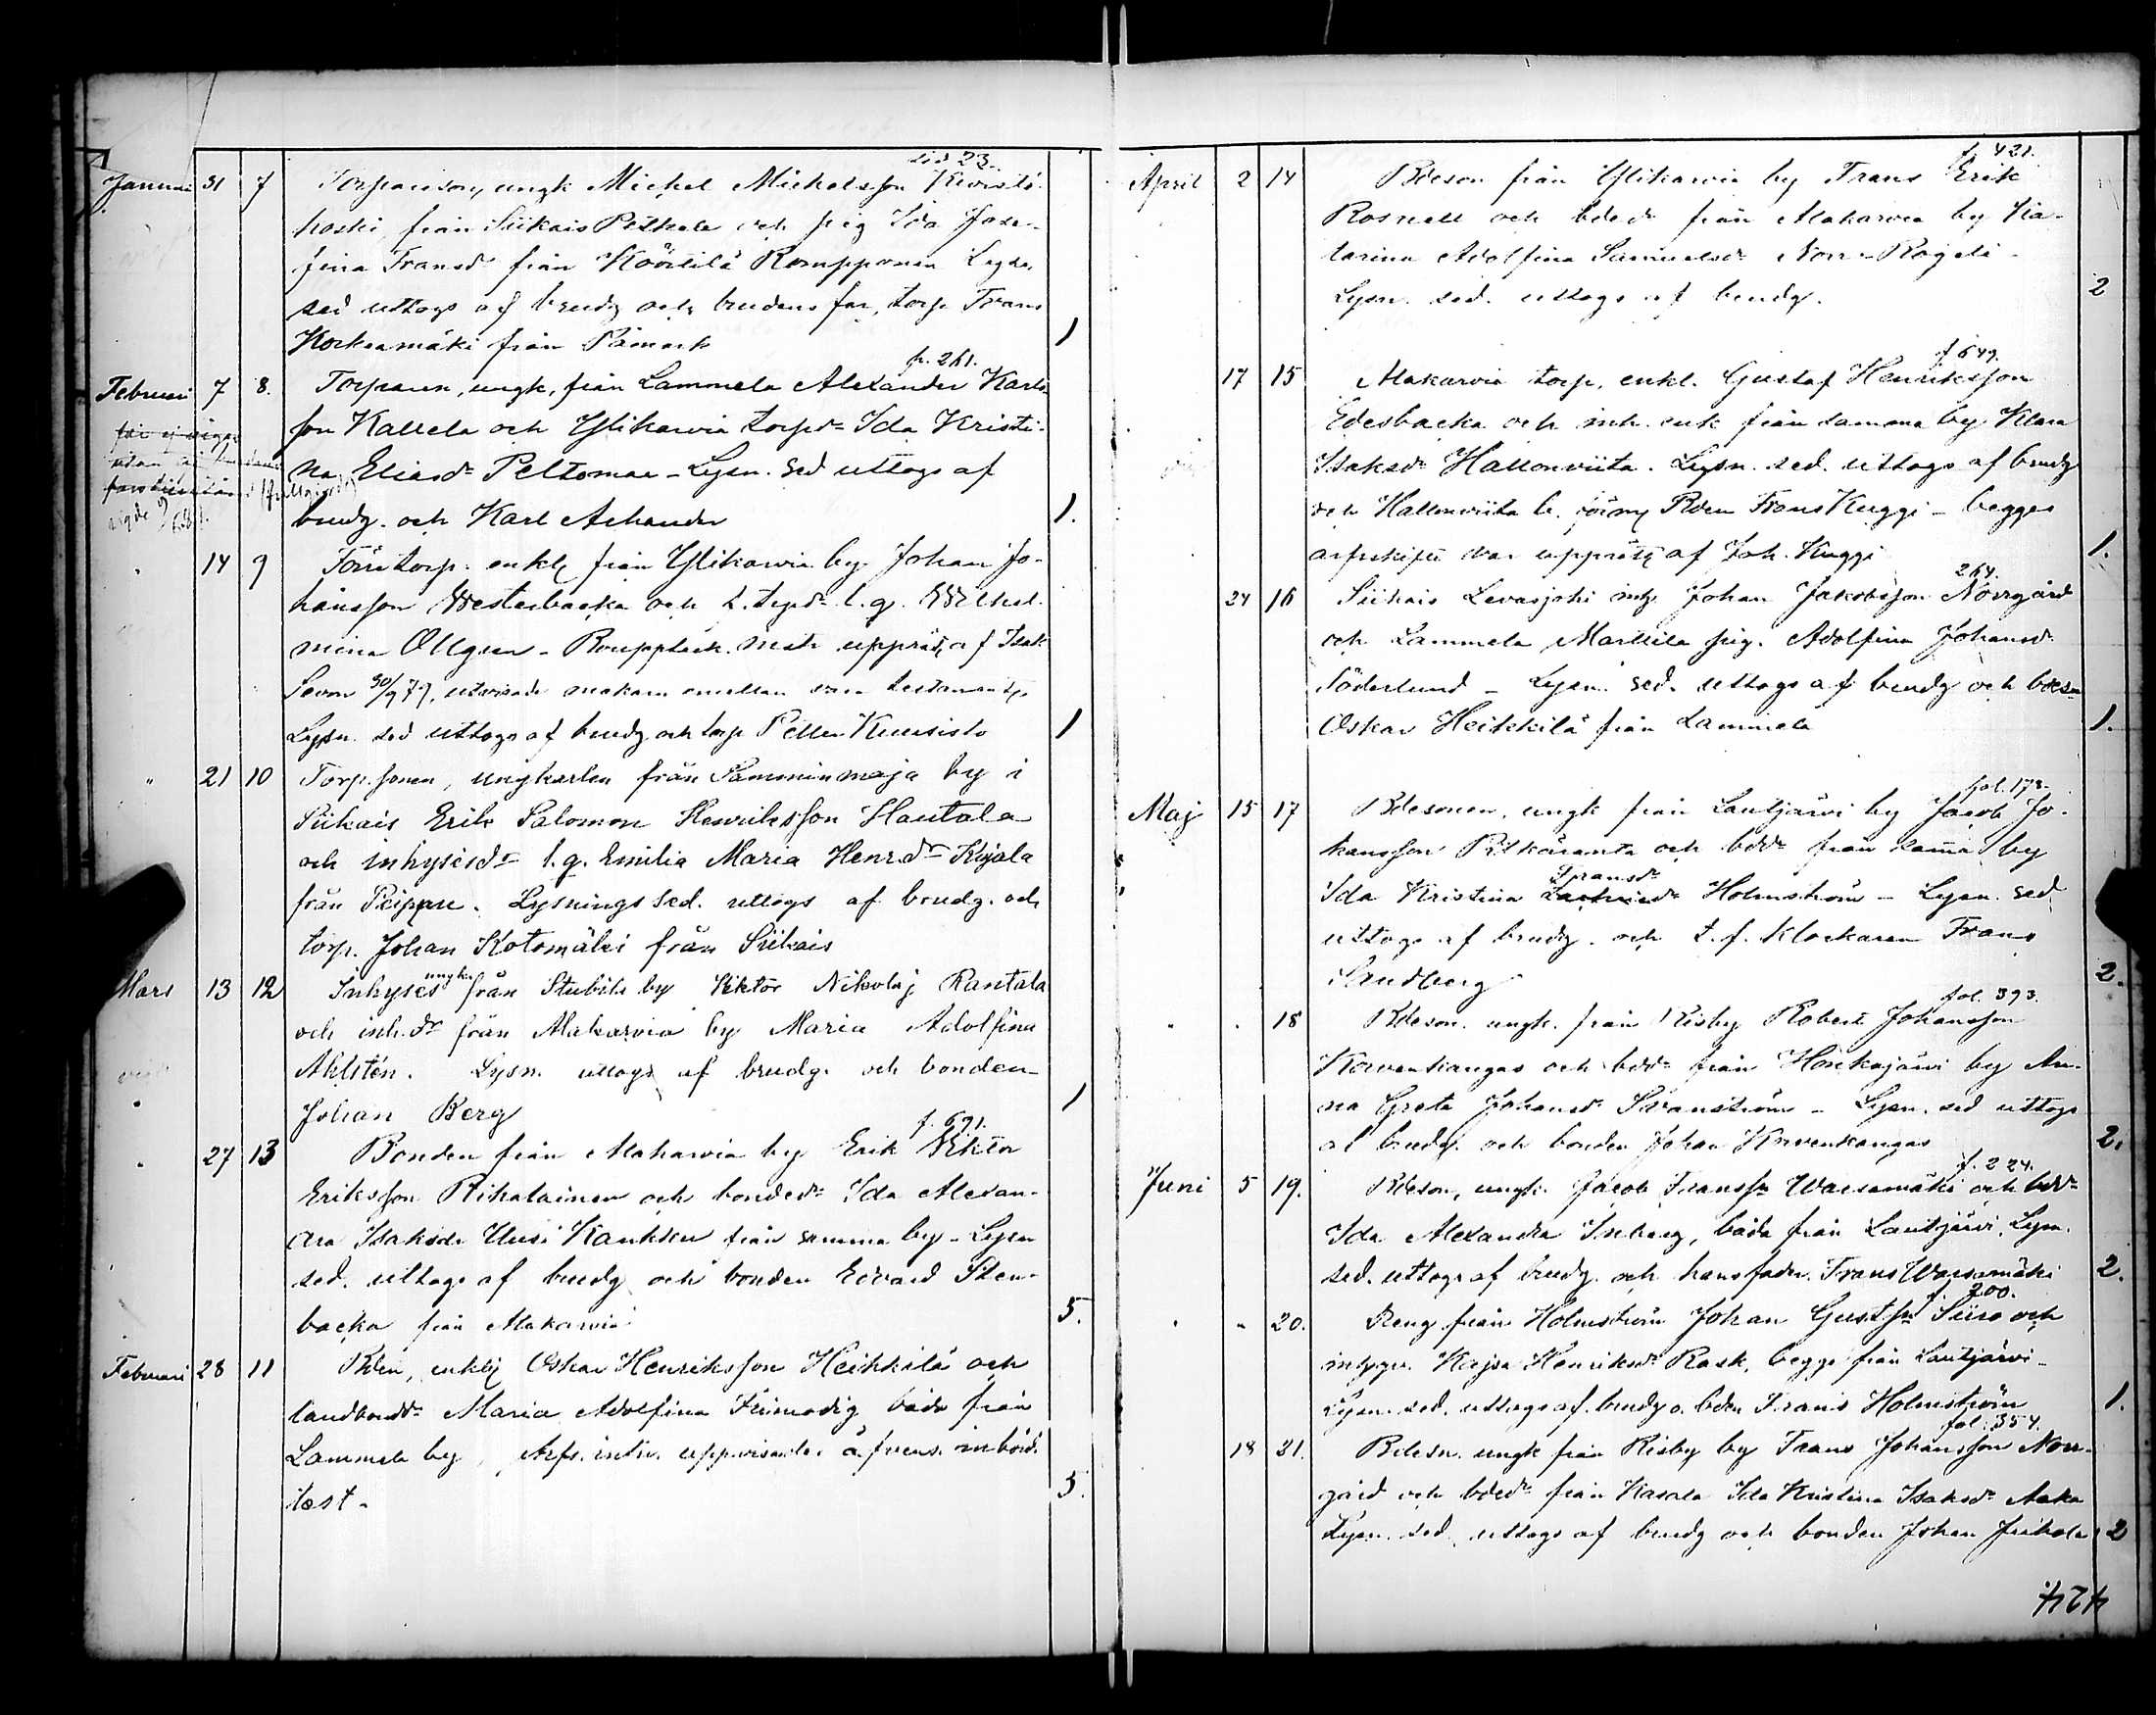 sid 23.
Januari 31 7 Torpareson, ungk Michel Michelsson Kivistö
koski, från Siikais Petkele och pig Ida Jose-
fina Fransdr från Köörtilä Rompponen Lygn.
sed uttogs af brudg och brudens far, torp. Frans
Korkeamäki från Påmark 1
p. 261.
Februari 7 8. Torparen, ungk, från Lammela Alexander Karls
son Kallela och Yttikarvia torpdr Ida Kristi-
na Eliasdr Peltomaa - Lysn. sed uttogs af
brudg. och Karl Achander 1.
" 14 9 Förre torp. enkl från Yttikarvia by Johan Jo-
hansson Westerbacka och t. torpdr l.q. Wilhel-
mina Ollgren - Bouppteck. instr upprätt af Isak
Sevon 30/9 79, utvisade makarne emellan vara testamente
Lysn. sed uttogs af brudg och torp Petter Kuusisto 1
" 21 10 Torp.sonen, ungkarlen från Samminmaja by i
Siikais Erik Salomon Henriksson Hautala
och inhysesdr l.q. Emilia Maria Henr.dr Kujala
från Peippu. Lysnings sed. uttogs af brudg. och
torp. Johan Kotomäki från Siikais
ungk.
Mars 13 12 Inhyses från Stubila by Viktor Nikolaj Rantala
och inh.dr från Alakarvia by Maria Adolfina
Ahlstén. Lysn. uttogs af brudg. och bonden
Johan Berg 1
f. 691.
" 27 13 Bonden från Alakarvia by Erik Viktor
Eriksson Rihalainen och bondedr Ida Alexan-
dra Isaksdr Uusi Kankku från samma by - Lysn
sed. uttogs af brudg och bonden Edvard Sten-
backa från Alakarvia 5.
Februari 28 11 Bden, enkl Oskar Henriksson Heikkilä och
landbondr Maria Adolfina Frimodig båda från
Lammela by, Arfs. intr. uppvisade, äfvens. inbörd.
test. 5.
f. 421.
April 2 14 Bdeson från Yttikarvia by Frans Erik
Rosnell och bdedr från Alakarvia by Ka-
tarina Adolfina Samuelsdr Norr-Rogeli -
Lysn. sed. uttogs af brudg. 2
f 649.
17 15 Alakarvia torp. enkl. Gustaf Henriksson
Edesbacka och inh. enk från samma by Klara
Isaksdr Hallonviita. Lysn. sed. uttogs af brudg
och Hallonviita b. Bden Frans Kuggi - begges
arfskifte var upprätt af Joh. Kuggi 1.
264.
24 16 Siikais Levasjoki Johan Jakobsson Norrgård
och Lammela Marttila pig. Adolfina Johansdr
Söderlund - Lysn. sed. uttogs af brudg och bdesn
Oskar Heikkilä från Lammela 1.
fol. 173.
Maj 15 17 Bdesonen, ungk från Lautjärvi by Jacob Jo-
hansson Pitkäranta och bddr från samma by
Fransdr
Ida Kristina Holmström - Lysn. sed.
uttogs af brudg. och t. f. Klockaren Frans
Sandberg 2.
fol. 393.
" " 18 Bdeson. ungk. från Risby Robert Johansson
Korvenkangas och bddr från Honkajärvi by An-
na Greta Johansdr Svanström - Lysn. sed uttogs
af brudg. och bonden Johan Korvenkangas 2.
f. 224.
Juni 5 19. Bdeson, ungk. Jacob Franss:n Warsamäki och bddr
Ida Alexandra Inberg, båda från Lautjärvi. Lysn.
sed. uttogs af brudg. och hans fader Frans Warsamäki 2.
f. 200.
" " 20. Dreng från Holmström Johan Gustss:n Siiro och
Kajsa Henriksdr Rask, begge från Lautjärvi -
Lysn. sed. uttogs af. brudg o. bden Frans Holmström 1.
fol. 354.
18 21. Bdesn. ungk från Risby by Frans Johansson Norr-
gård och bdedr från Kasala Ida Kristina Isaksdr Aska
Lysn. sed. uttogs af brudg och bonden Johan Juhola 2
424.